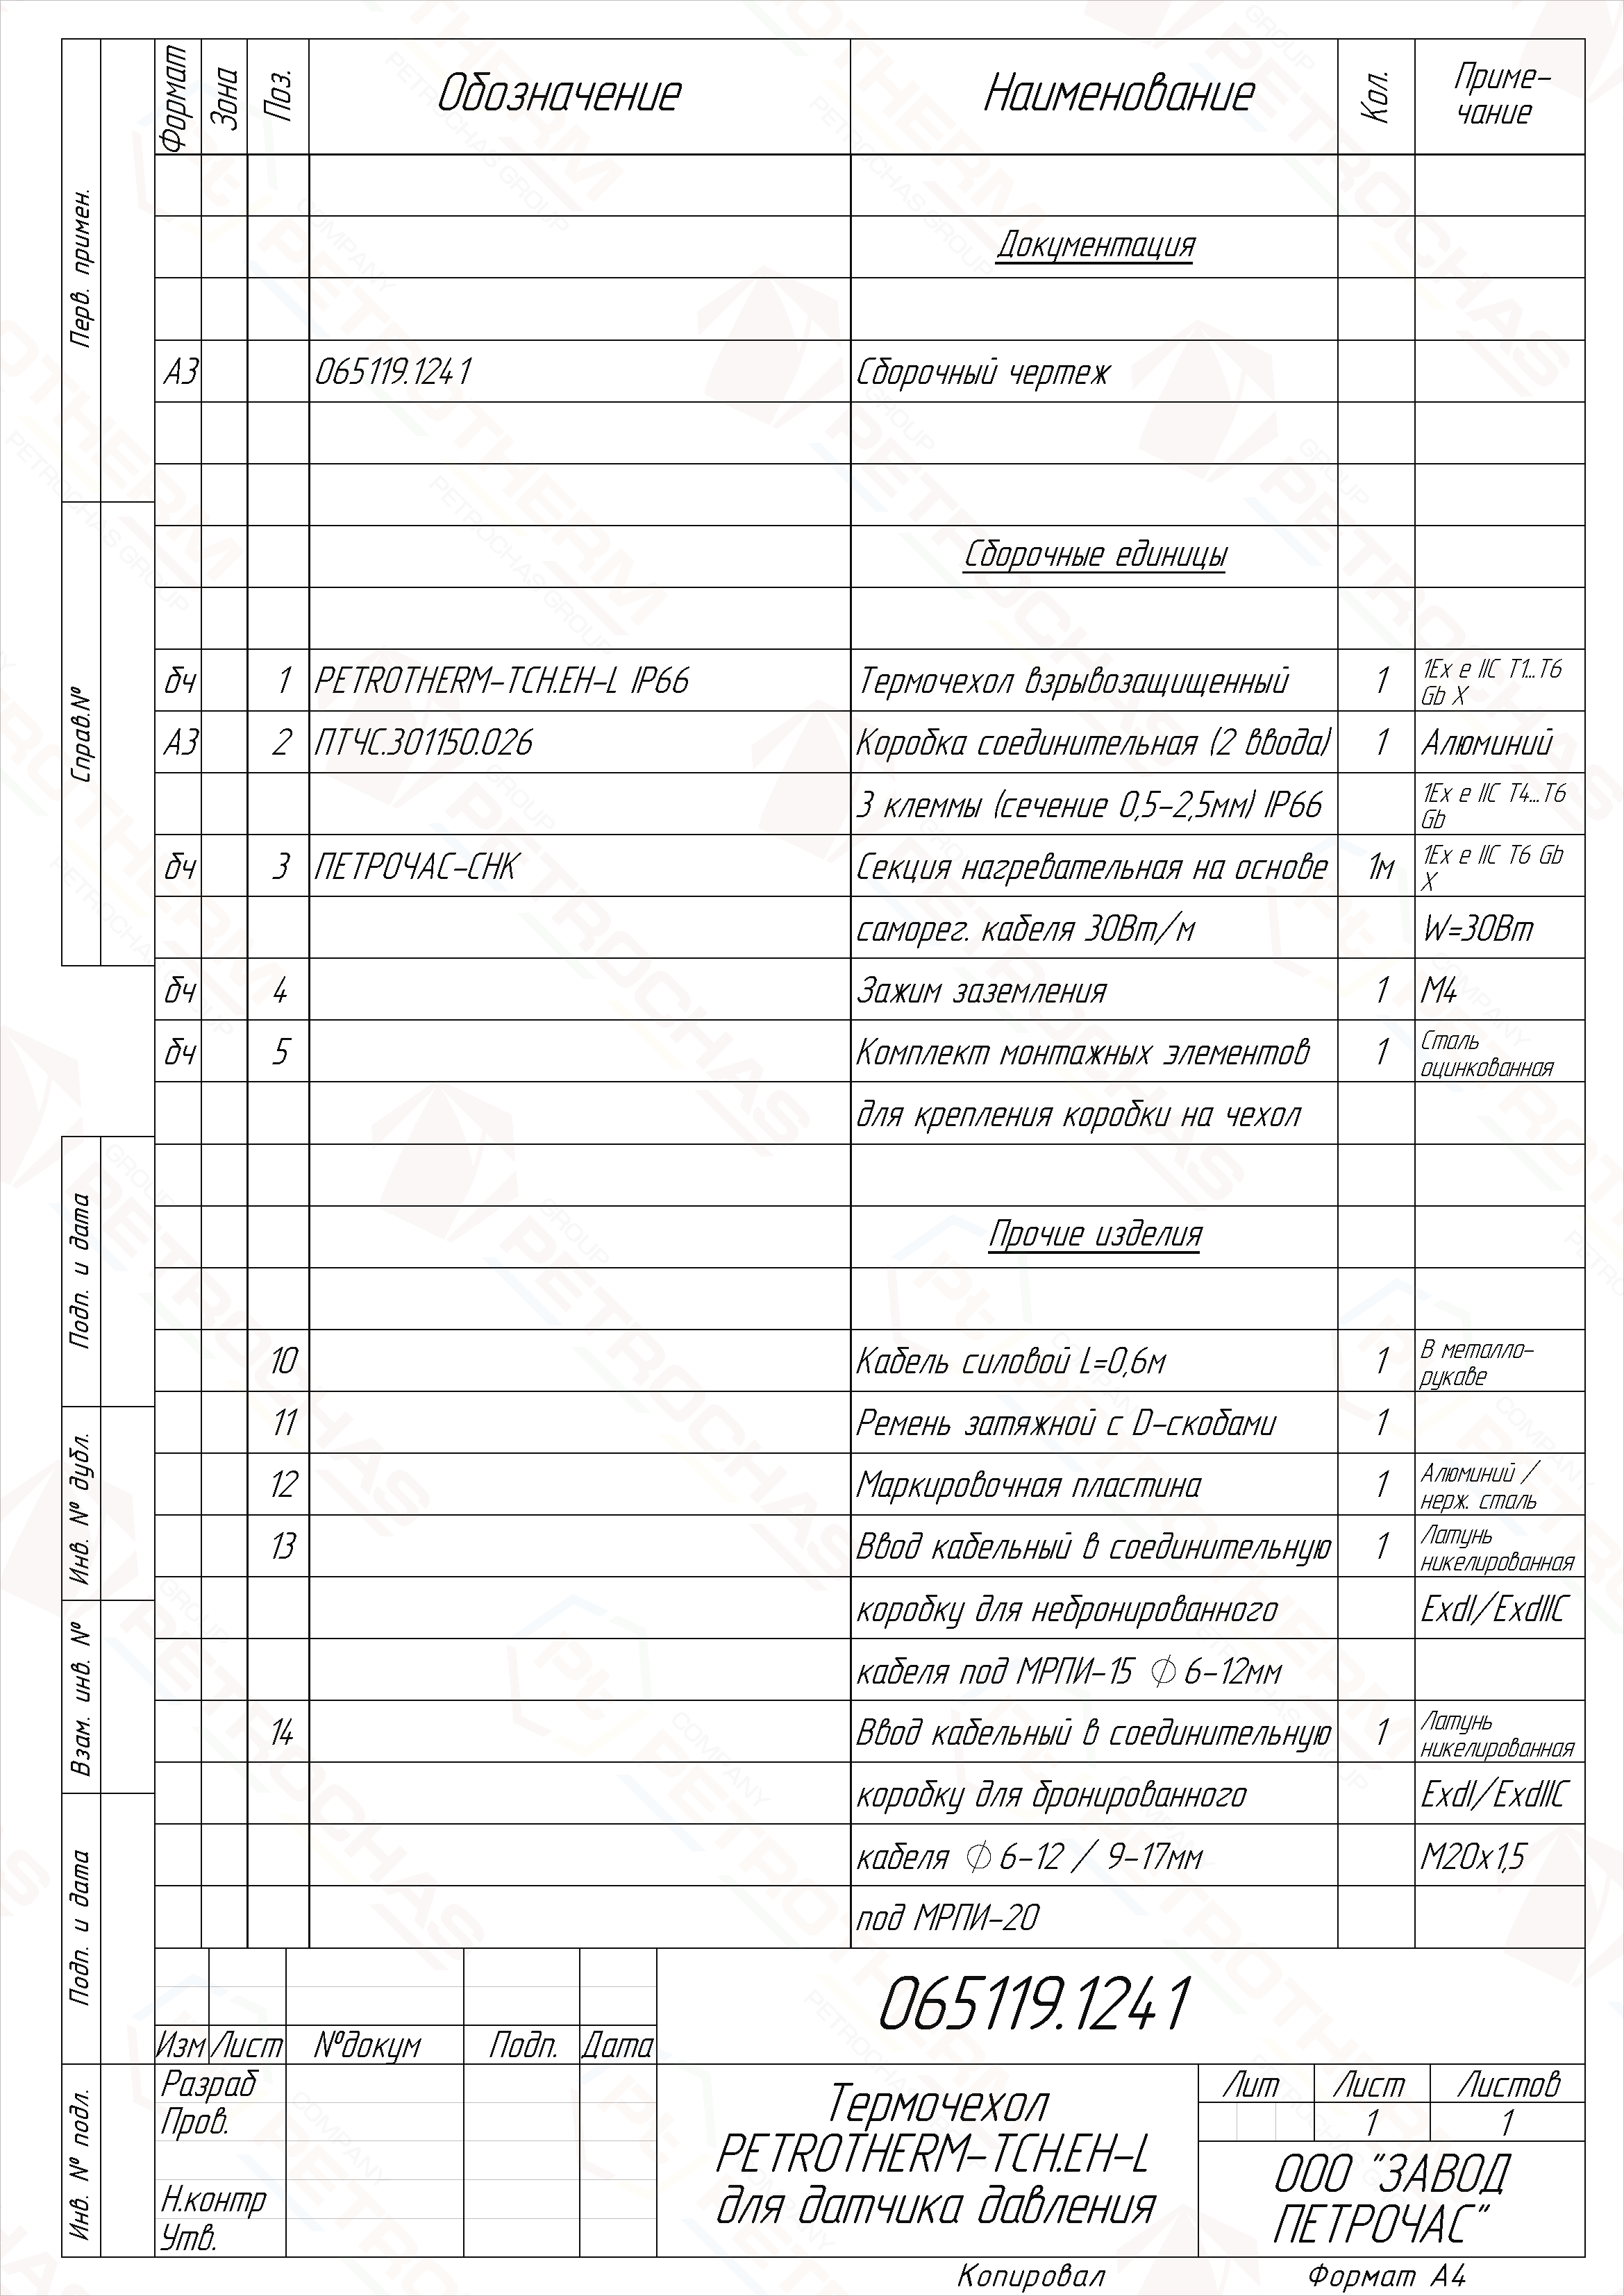 Формат Зона Поз. Обозначение Наименование Кол. Приме-
чание
Документация
А3 065119.1241 Сборочный чертеж
Сборочные единицы
бч 1 PETROTHERM-TCH.EH-L IP66 Термочехол взрывозащищенный 1 1Ex e IIC T1...T6
Gb X
А3 2 ПТЧС.301150.026 Коробка соединительная (2 ввода) 1 Алюминий
3 клеммы (сечение 0,5-2,5мм) IP66 1Ex e IIC T4...T6
Gb
бч 3 ПЕТРОЧАС-СНК Секция нагревательная на основе 1м 1Ex e IIC T6 Gb
X
саморег. кабеля 30Вт/м W=30Вт
бч 4 Зажим заземления 1 М4
бч 5 Комплект монтажных элементов 1 Сталь
оцинкованная
для крепления коробки на чехол
Прочие изделия
10 Кабель силовой L=0,6м 1 В металло-
рукаве
11 Ремень затяжной с D-скобами 1
12 Маркировочная пластина 1 Алюминий /
нерж. сталь
13 Ввод кабельный в соединительную 1 Латунь
никелированная
коробку для небронированного ExdI/ExdIIC
кабеля под МРПИ-15 ∅ 6-12мм
14 Ввод кабельный в соединительную 1 Латунь
никелированная
коробку для бронированного ExdI/ExdIIC
кабеля ∅ 6-12 / 9-17мм М20х1,5
под МРПИ-20
Перв. примен.
Справ.№
Подп. и дата
Инв. № дубл.
Взам. инв. №
Подп. и дата
Инв. № подл.
065119.1241
Изм Лист №докум Подп. Дата
Разраб
Пров.
Н.контр
Утв.
Термочехол
PETROTHERM-TCH.EH-L
для датчика давления
Лит Лист Листов
1 1
ООО "ЗАВОД
ПЕТРОЧАС"
Копировал Формат А4